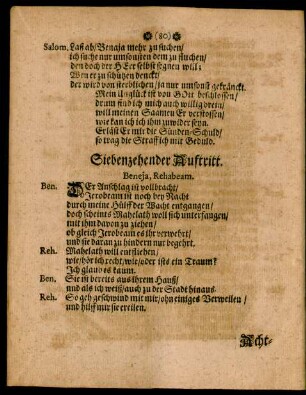 (80)
Salom. Laß ab/ Benaja mehr zu fluchen/
ich suche nur umsonsten dem zu fluchen/
den doch der HErr selbst segnen will;
Wen er zu schützen denckt/
der wird von sterblichen/ ja nur umsonst gekränckt.
Mein Unglück ist von GOtt beschlossen/
drum find ich mich auch willig drein/
will meinen Saamen Er verstossen/
wie kan ich ihm zuwider seyn.
Erläst Er mir die Sünden-Schuld/
so trag die Straff ich mit Gedult.
Siebenzehender Auftritt.
Beneja, Rehabeam.
Ben. DEr Anschlag ist vollbracht/
Jerobeam ist noch bey Nacht
durch meine Hülff der Wacht entgangen/
doch scheints Mahelath woll sich unterfangen/
mit ihm davon zu ziehen/
ob gleich Jerobeam es ihr verwehrt/
und sie daran zu hindern nur begehrt.
Reh. Mahelath will entfliehen/
wie/ hör ich recht/ wie/ oder ists ein Traum?
Ich glaub es kaum.
Ben. Sie ist bereits aus ihrem Hauß/
und als ich weiß/ auch zu der Stadt hinaus.
Reh. So geh geschwind mit mir/ ohn einiges Verweilen/
und hilff mir sie ereilen.
Acht-